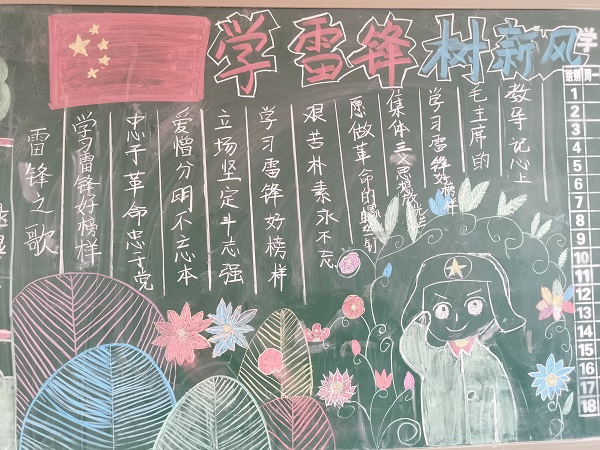 学雷锋树新风
雷锋之歌
学习雷锋好榜样
忠于革命忠于党
爱憎分明不忘本
立场坚定斗志强
学习雷锋好榜样
艰苦朴素永不忘
愿做革命的螺丝钉
集体主义思想放光芒
学习雷锋好榜样
毛主席的
教导记心上
学
1
2
3
4
5
6
7
8
9
10
11
12
13
14
15
16
17
18